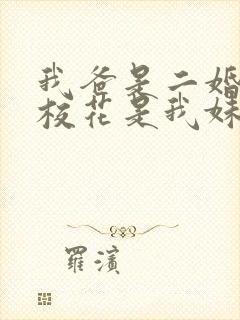 我爸是二婚
校花是我妹
羅濱